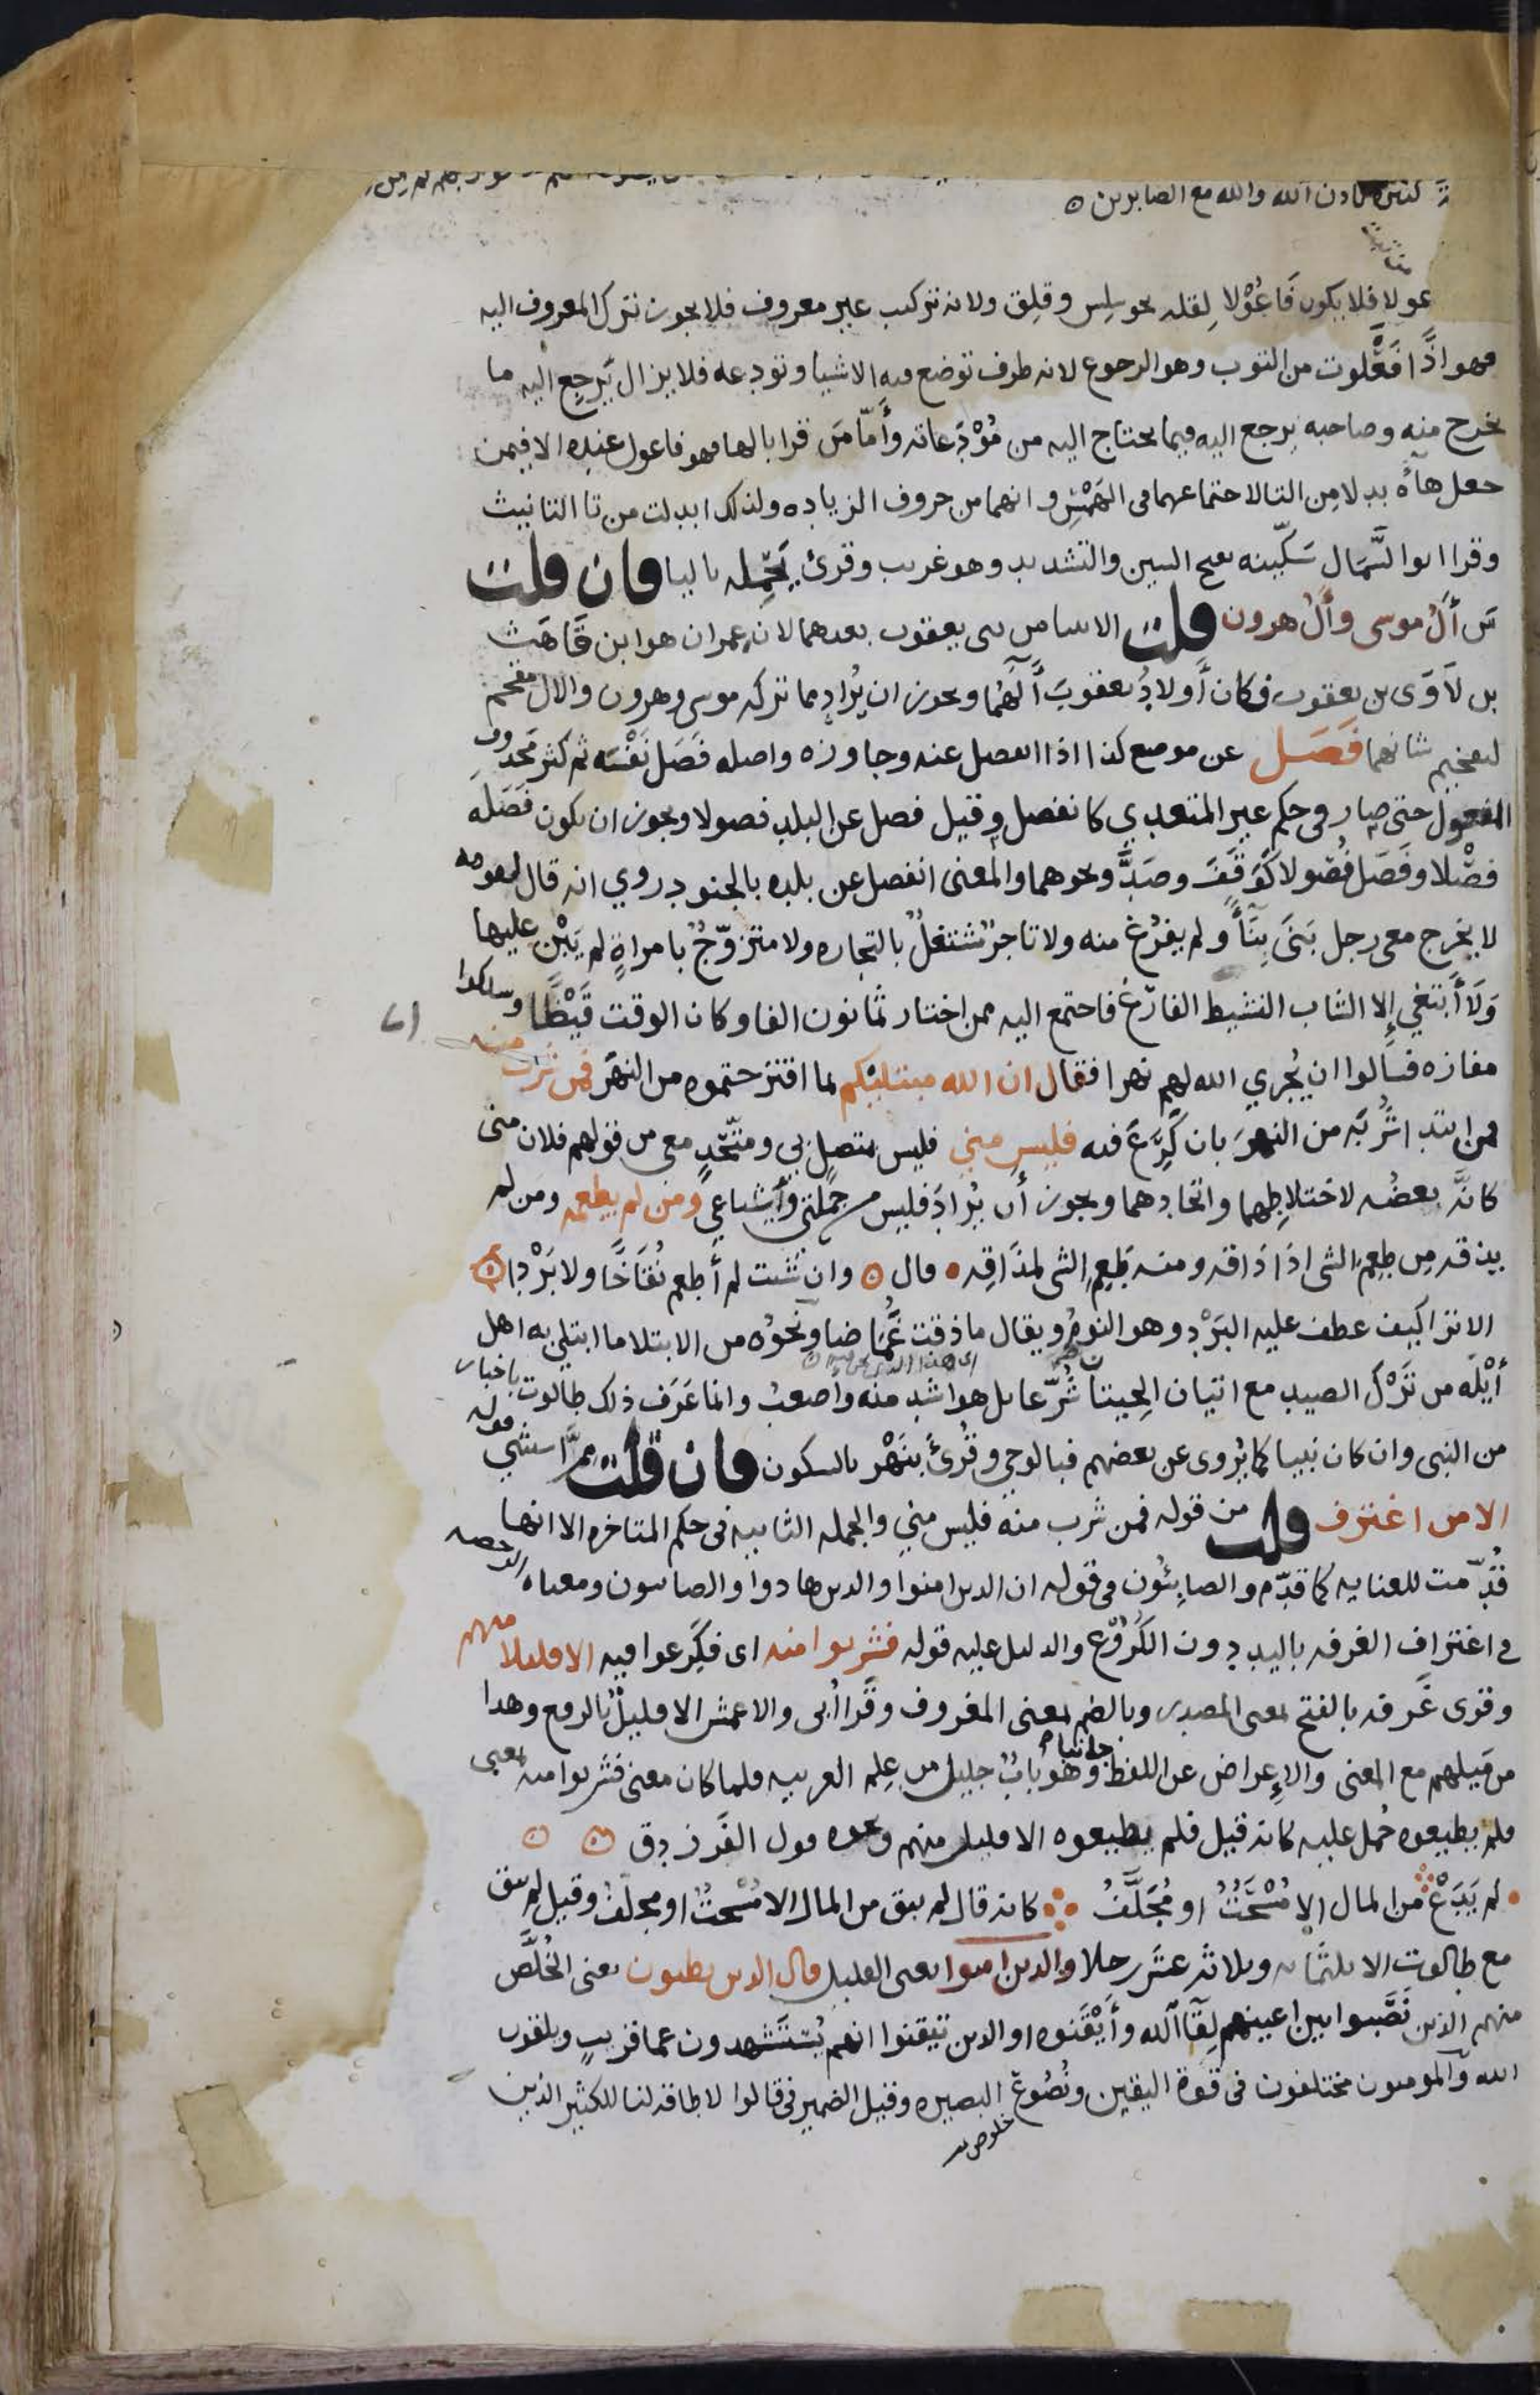 كثيره باذن الله والله مع الصابرين ه
فلا يكون فَاعُوْلا لِقلته نحو سلِس وقلِق ولانه تركيب غير معروف فلا يجوز ترك المعروف اليه
فهو اذًا فَعَلوت من التوب وهو الرجوع لانه ظرف توضع فيه الاشيا وتودعه فلا يزال يَرجِع اليه ما
يخرج منه وصاحبه يرجع اليه فيما يحتاج اليه من مُوْدَعاته وأمّا مَن قرا بالها فهو فاعول عنده الا فيمن
جعل هآءه بدلا مِن التا لاجتماعهما فى الهَمْس وانهما من حروف الزياده ولذلك ابدلت من تا التانيث
وقرا ابوا السَّمال سَكّينه بفتح السين والتشديد وهو غريب وقرئ يَحْمِله باليا فان قلت
مَن أٓلُ موسى وأٓلُ هرون قلت الانبيا من بنى يعقوب بعدهما لان عمران هو ابن قَاهَث
بن لَاوَى بن يعقوب فكان أَولادُ يعقوبَ أٓلَهُما ويجوز ان يُرادَ مما تركه موسى وهرون والال مقحم
لتفخيم شانهما فَصَل عن موضع كذا اذا انفصل عنه وجاوزه واصله فَصَل نَفْسَه ثم كثر مَحذوف
المفعول حتى صار فى حكم غير المتعدي كانفصل وقيل فصل عن البلد فصولا ويجوز ان يكون فَصَلَه
فصْلا وفَصَل فُصُولا كوَقَفَ وصَدَّ ونحوهما والمعنى انفصل عن بلده بالجنود روي انه قال لقومه
لا يخرج معى رجل بَنَى بِنَآءً ولم يفرُغ منه ولا تاجرٌ مُشتغلٌ بالتجاره ولا متزوّجٌ بامراةٍ لم يَبْنِ عليها
وَلَا أَبتغي إلا الشاب النشيط الفارغ فاجتمع اليه ممن اختار ثمانون الفا وكان الوقت قَيْظًا وسلكوا
مفازه فسالوا ان يُجري الله لهم نهرا فقال ان الله مبتليكم بما اقترحتموه من النهَر فمن شرب منه
فمن ابتدا شُرْبَه من النهَر بان كَرَعَ فيه فليس مني فليس متصلٍ بي ومتّحدٍ معى من قولهم فلان منى
كانَّه بعضُه لاختلاطهما واتحادهما ويجوز أن يُرادَ فليس من جُملَتى وأشياعي ومن لم يطعمه ومن لم
يذقه مِن طعِم الشى اذَا ذَاقه ومنه طَعِم الشى لمذَاقِه قال ه وان شئت لم أَطعم نُقَاخًا ولا بَرْدا ه
الا تراكيف عطف عليه البَرْد وهو النومُ ويقال ما ذقت غُمَاضا ونحوُه من الابتلا ما ابتلى به اهل
اى هذا الذى نحن فيه ه
أَيْلَه من تَرْك الصيد مع اتيان الحِيتان شُرَّعا بل هو اشد منه وأصعبُ وانما عَرَف ذلك طالوت باخبار
من النبى وان كان نبيا كما يُروى عن بعضهم فبالوحي وقُرئَ بنَهْر بالسكون فان قلت مِمَّ استثنى قوله
الا من اغترف قلت من قوله فمن شرب منه فليس مني والجمله الثانيه فى حكم المتاخره الا انها
قُدّمت للعنايه كما قدِّم والصابِئُون فى قوله ان الدين امنوا والدين هادوا والصابيون ومعناه الرخصه
في اغتراف الغرفه باليد دون الكُروْع والدليل عليه قوله فشربوا منه اى فكَرَعوا فيه الا قليلا منهم
وقرى غَرفه بالفتح بمعنى المصدر وبالضم بمعنى المغروف وقرا أُبى والاعمش الا قليلٌ بالرفع وهدا
من مَيلهم مع المعنى والاِعراض عن اللفظ جانبا وهو بابٌ جليل من عِلم العربيه فلما كان معنى فشربوا منه بمعنى
فلم يطيعوه حُمل عليه كانه قيل فلم يطيعوه الا قليل منهم ونحوه قول الفَرزدق ه ه
لم يَدَعْ مِن المال الا مُسْحَتٌ او مُجَلَّفُ كانه قال لم يبق من المال الا مُسْحتٌ او مجلّفٌ وقيل لم يبق
مع طالوت الا ثلثمَايه وثلاثه عشَر رجلا والدين امنوا يعنى القليل قال الدين يظنون يعنى الخُلَّص
منهم الذين نَصَّبوا بين اعينهم لِقآَ الله وأَيْقَنوه او الدين تيقنوا انهم يُسْتَشهدون عما قريبٍ ويلقون
الله والمومنون مختلفون فى قوة اليقين ونُصُوعِ البصيره وقيل الضمير فى قالوا لا طاقه لنا للكثير الذين
خلوص